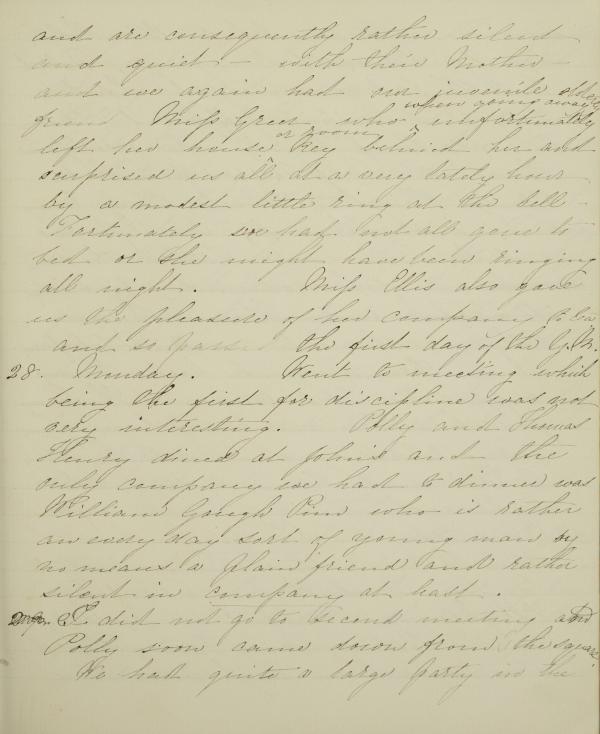 and are consequently rather silent
and quiet - with their Mother -
and we again had our juvenile elderly
friend Miss Green who when going away unfortunately
left her house or room key behind her and
surprised us all at a very lately hour
by a modest little ring at the bell -
Fortunately we had not all gone to
bed or she might have been ringing
all night. Miss Ellis also gave
us the pleasure of her company to tea
and so pass the first day of the Y.M.
28. Monday. Went to meeting which
being the first for discipline was not
very interesting. Polly and Thomas
Henry dined at John's and the
only company we had to dinner was
William Gough Pim who is rather
an every day sort of young man by
no means a plain friend and rather
silent in company at least.
I did not go to second meeting and
Polly soon came down from the square.
We had quite a large party in the